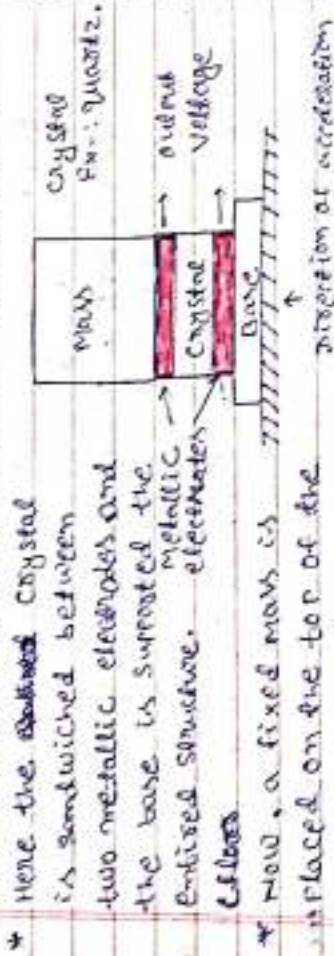 * Here the crystal
is sandwiched between
two metallic electrodes and
the base is supported the
entired structure.
* Now, a fixed mass is
placed on the top of the
Mass
Crystal
Base
Metallic
electrodes
output
voltage
Crystal
Ex-: Quartz.
Direction of acceleration